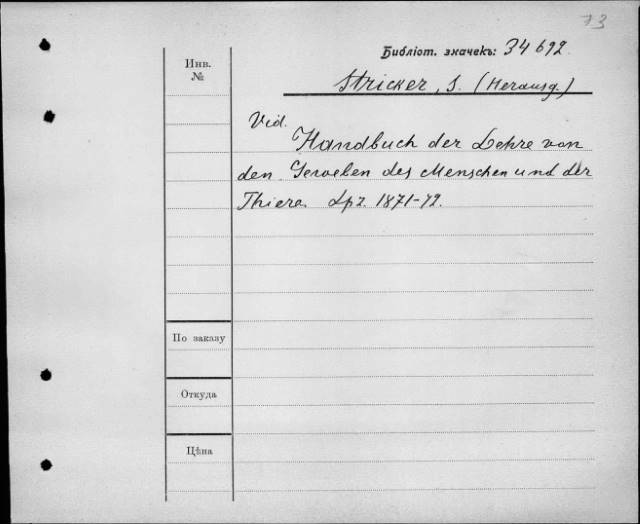 73
Библіот. значекъ: 34692.
Инв.
№
Stricker, S. (Herausg.)
Vid.
Handbuch der Lehre von
den Geweben des Menschen und der
Thiere. Lpz. 1871-72.
По заказу
Откуда
Цѣна